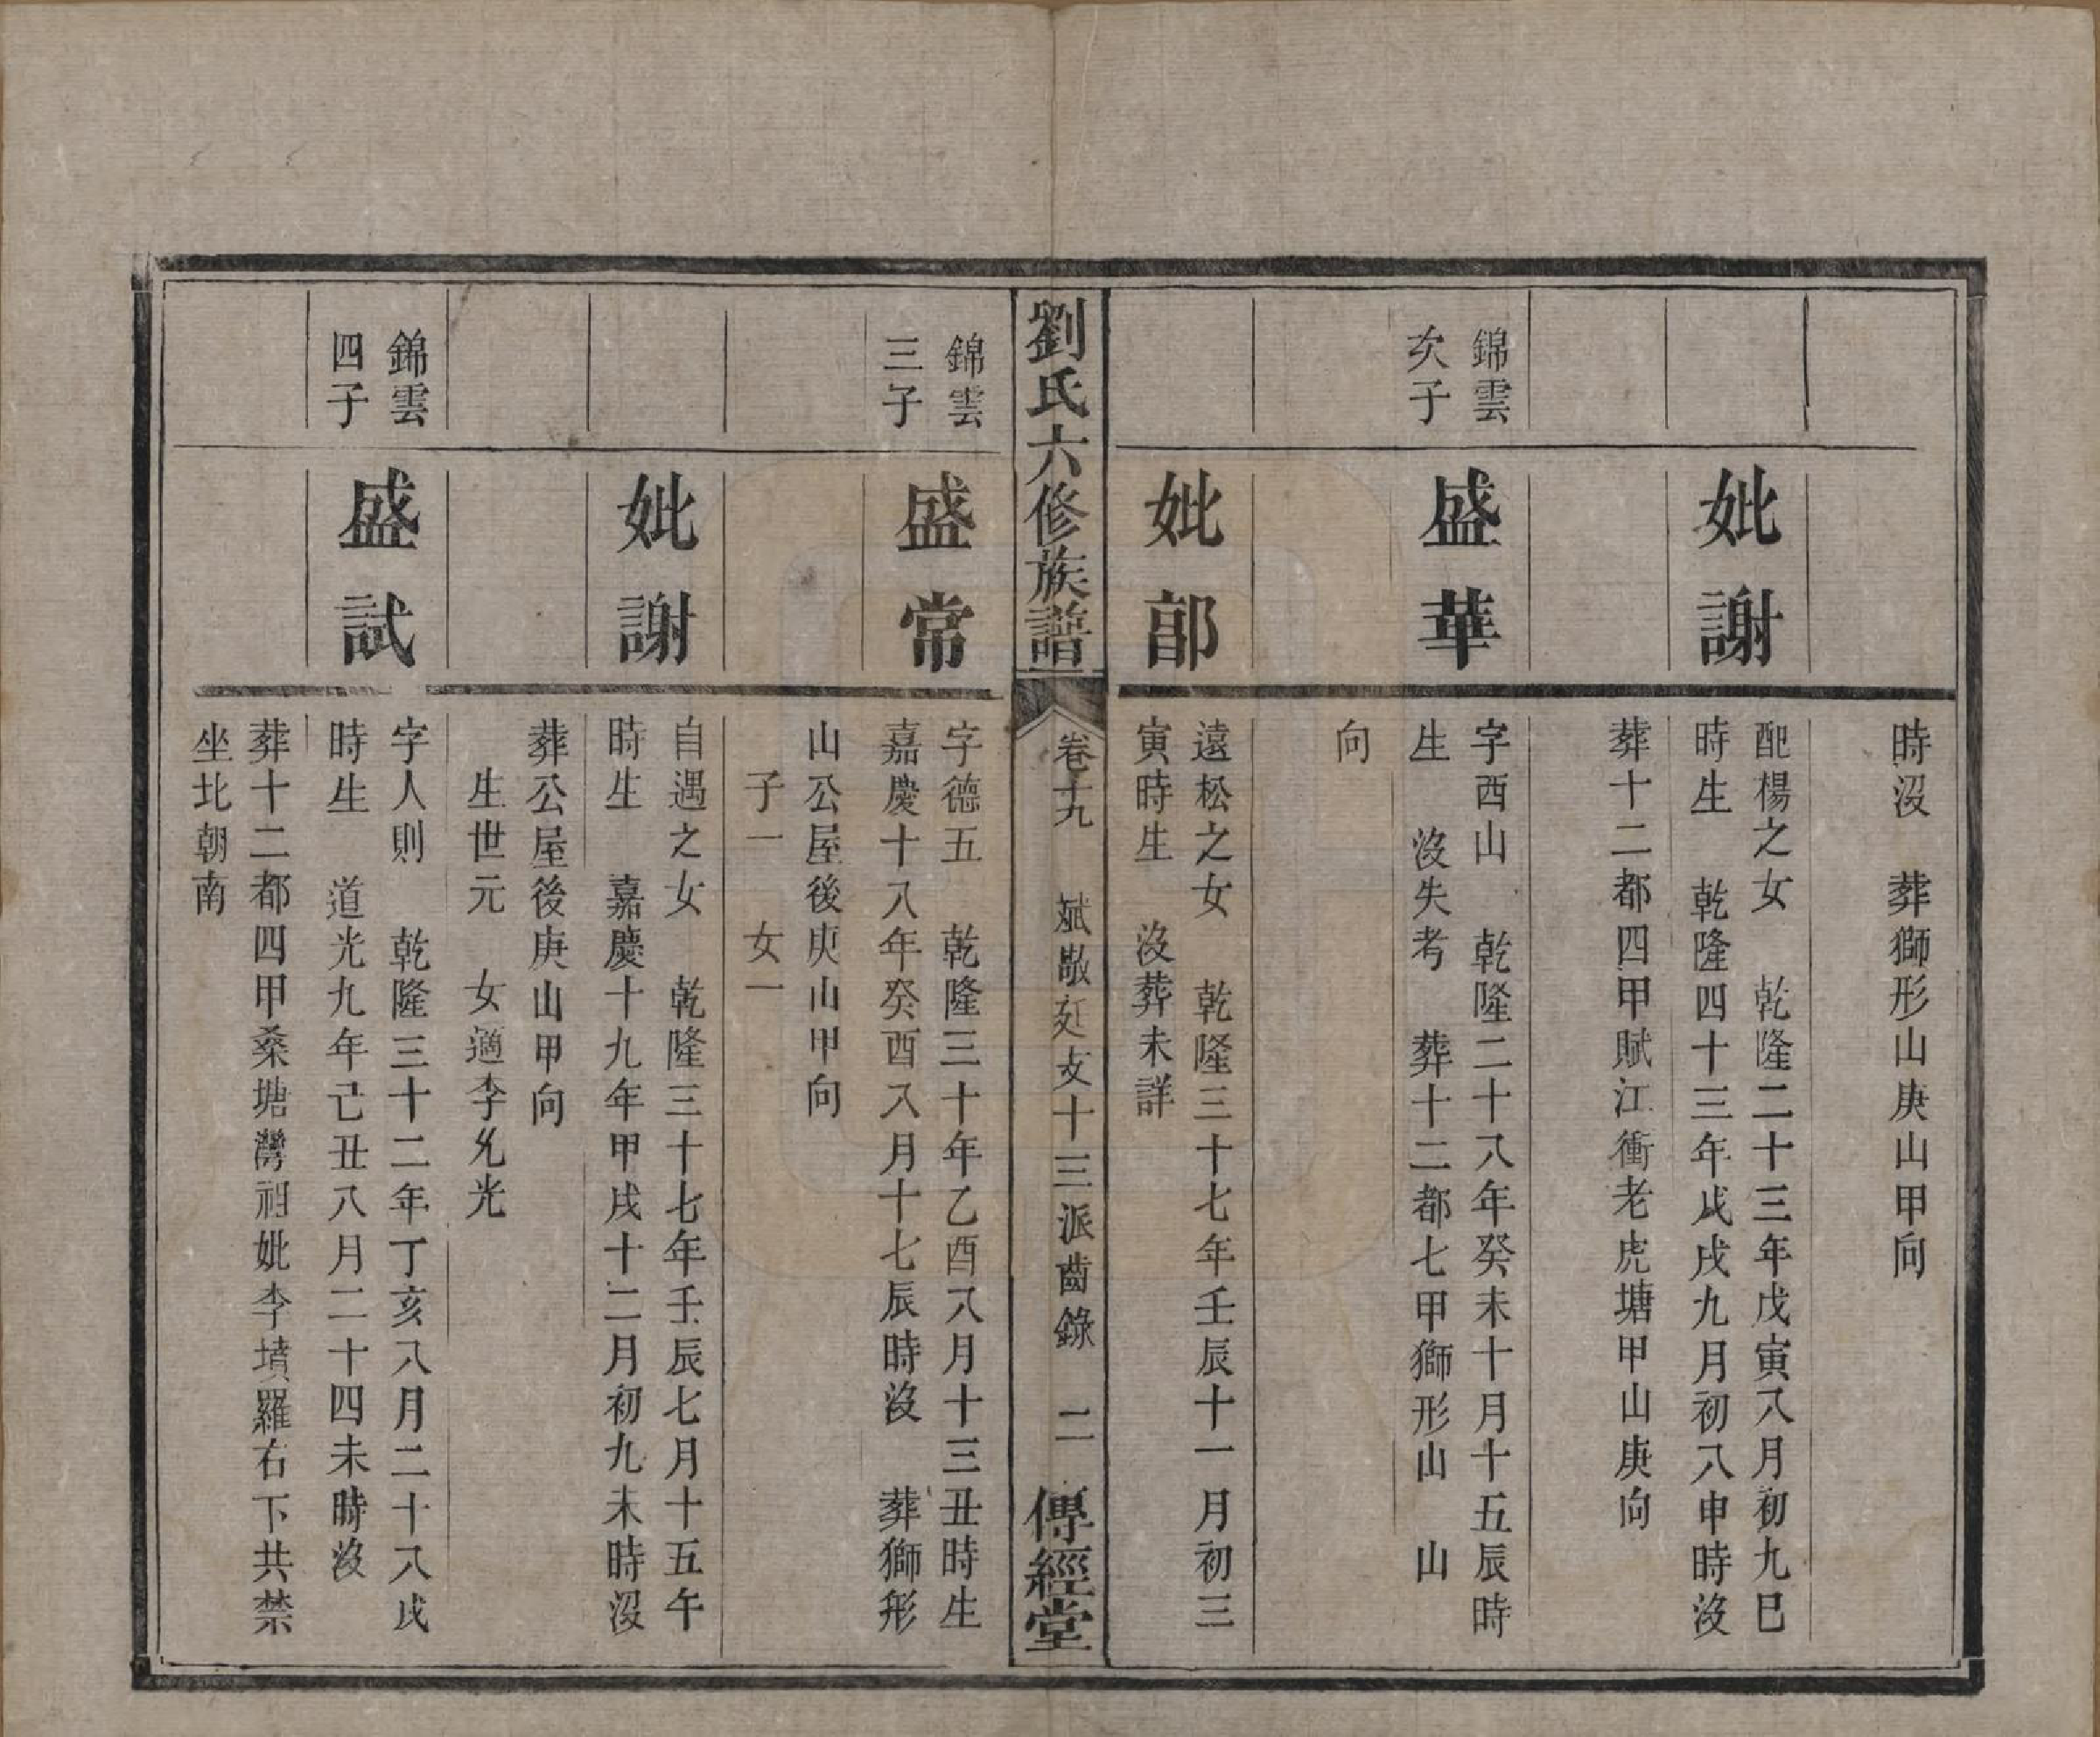 時沒　葬獅形山庚山甲向
妣謝
配楊之女　乾隆二十三年戊寅八月初九巳
時生　乾隆四十三年戊戌九月初八申時沒
葬十二都四甲賦江衝老虎塘甲山庚向
錦雲
次子
盛華
字西山　乾隆二十八年癸未十月十五辰時
生　沒失考　葬十二都七甲獅形山　山
向
妣郭
遠松之女　乾隆三十七年壬辰十一月初三
寅時生　沒葬未詳
劉氏六修族譜
卷十九　斌敬廷支十三派齒錄　二
傳經堂
錦雲
三子
盛常
字德五　乾隆三十年乙酉八月十三丑時生
嘉慶十八年癸酉八月十七辰時沒　葬獅形
山公屋後庚山甲向
子一　女一
妣謝
自遇之女　乾隆三十七年壬辰七月十五午
時生　嘉慶十九年甲戌十二月初九未時沒
葬公屋後庚山甲向
生世元　女適李允光
錦雲
四子
盛試
字人則　乾隆三十二年丁亥八月二十八戌
時生　道光九年己丑八月二十四未時沒
葬十二都四甲桑塘灣祖妣李墳羅右下共禁
坐北朝南